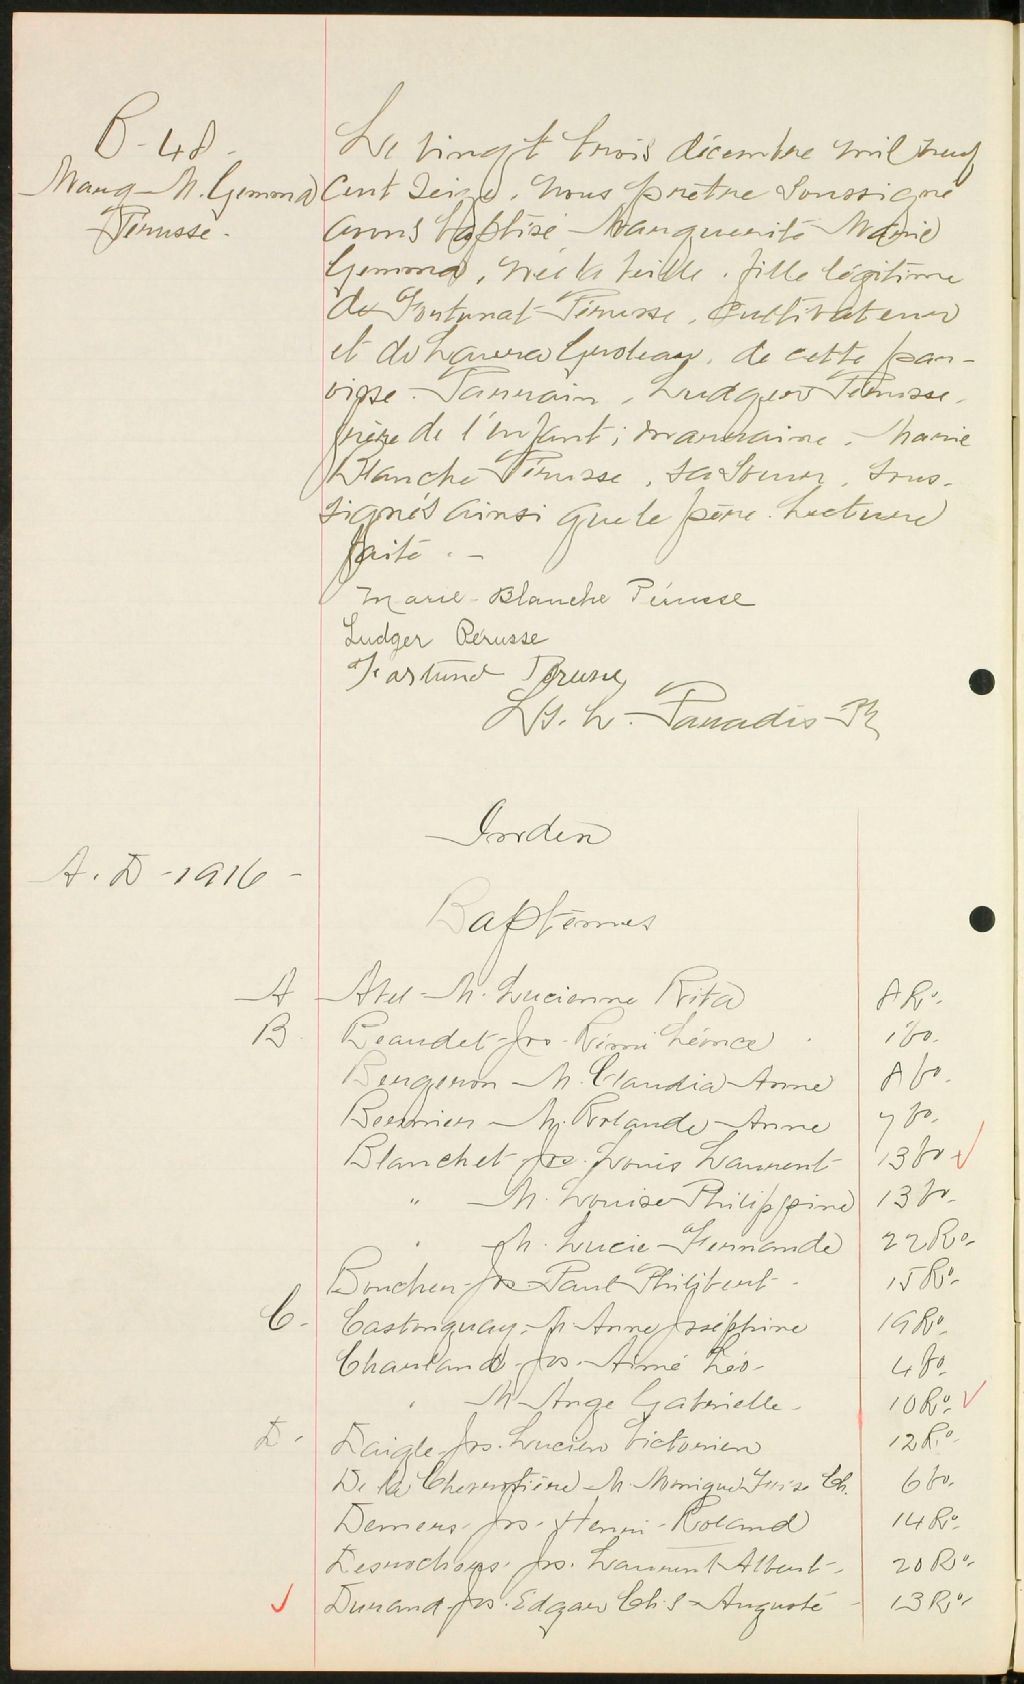 B-48-
Marg-M. Gemma
Pérusse-
Le vingt trois décembre mil neuf
cent seize, nous prêtre soussigné
avons baptisé Marguerite Marie
Gemma, née la veille, fille légitime
de Fortunat Pérusse, cultivateur
et de Laura, de cette par-
oisse. Parrain, Ludger Pérusse,
frère de l'enfant; marraine, Marie
Blanche Pérusse, sa soeur, sous-
signés ainsi que le père. Lecture
faite. -
Marie-Blanche Pérusse
Ludger Pérusse
Ls. L. Paradis Ptr
Index
A. D-1916-
Baptêmes
A Abel-M. Lucienne Rita 8 Ro.
B. Beaudet-Jos-Rémi Léonce 1 Vo.
Bergeron-M. Claudia-Anne 8 Vo.
Bernier-M. Rolande-Anne 7 Vo.
Blanchet Jos. Louis Laurent 13 Vo
" M. Louise Philippine 13 Vo.
" M. Lucie-Fernande 22 Ro.
Boucher-Jos-Paul Philibert- 15 Ro.
C. Castonguay-M-Anne Joséphine 19 Ro.
Charland-Jos.-Aimé Léo- 4 Vo.
" M-Ange Gabrielle- 10 Ro.
D. Daigle-Jos. Lucien Victorien 12 Ro.
De la Chevrotière-M-Monique Ch. 6 Vo.
Demers-Jos-Henri-Roland 14 Ro.
Desrochers-Jos. Laurent Albert- 20 Ro.
Durand-Jos. Edgar Chs-Auguste 13 Ro.